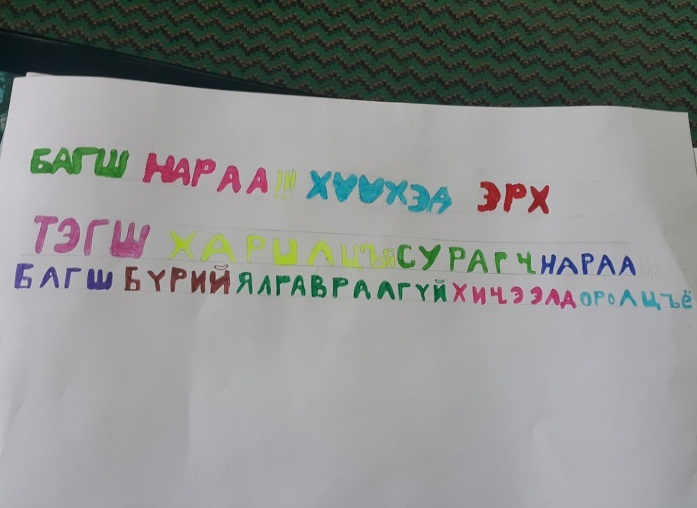 БАГШ НАРАА!!! ХҮҮХЭД ЭРХ
ТЭГШ ХАРИЛЦЪЯ СУРАГЧ НАРАА!!!
БАГШ БҮРИЙ ЯЛГАВРААЛГҮЙ ХИЧЭЭЛД ОРОЛЦЪЁ